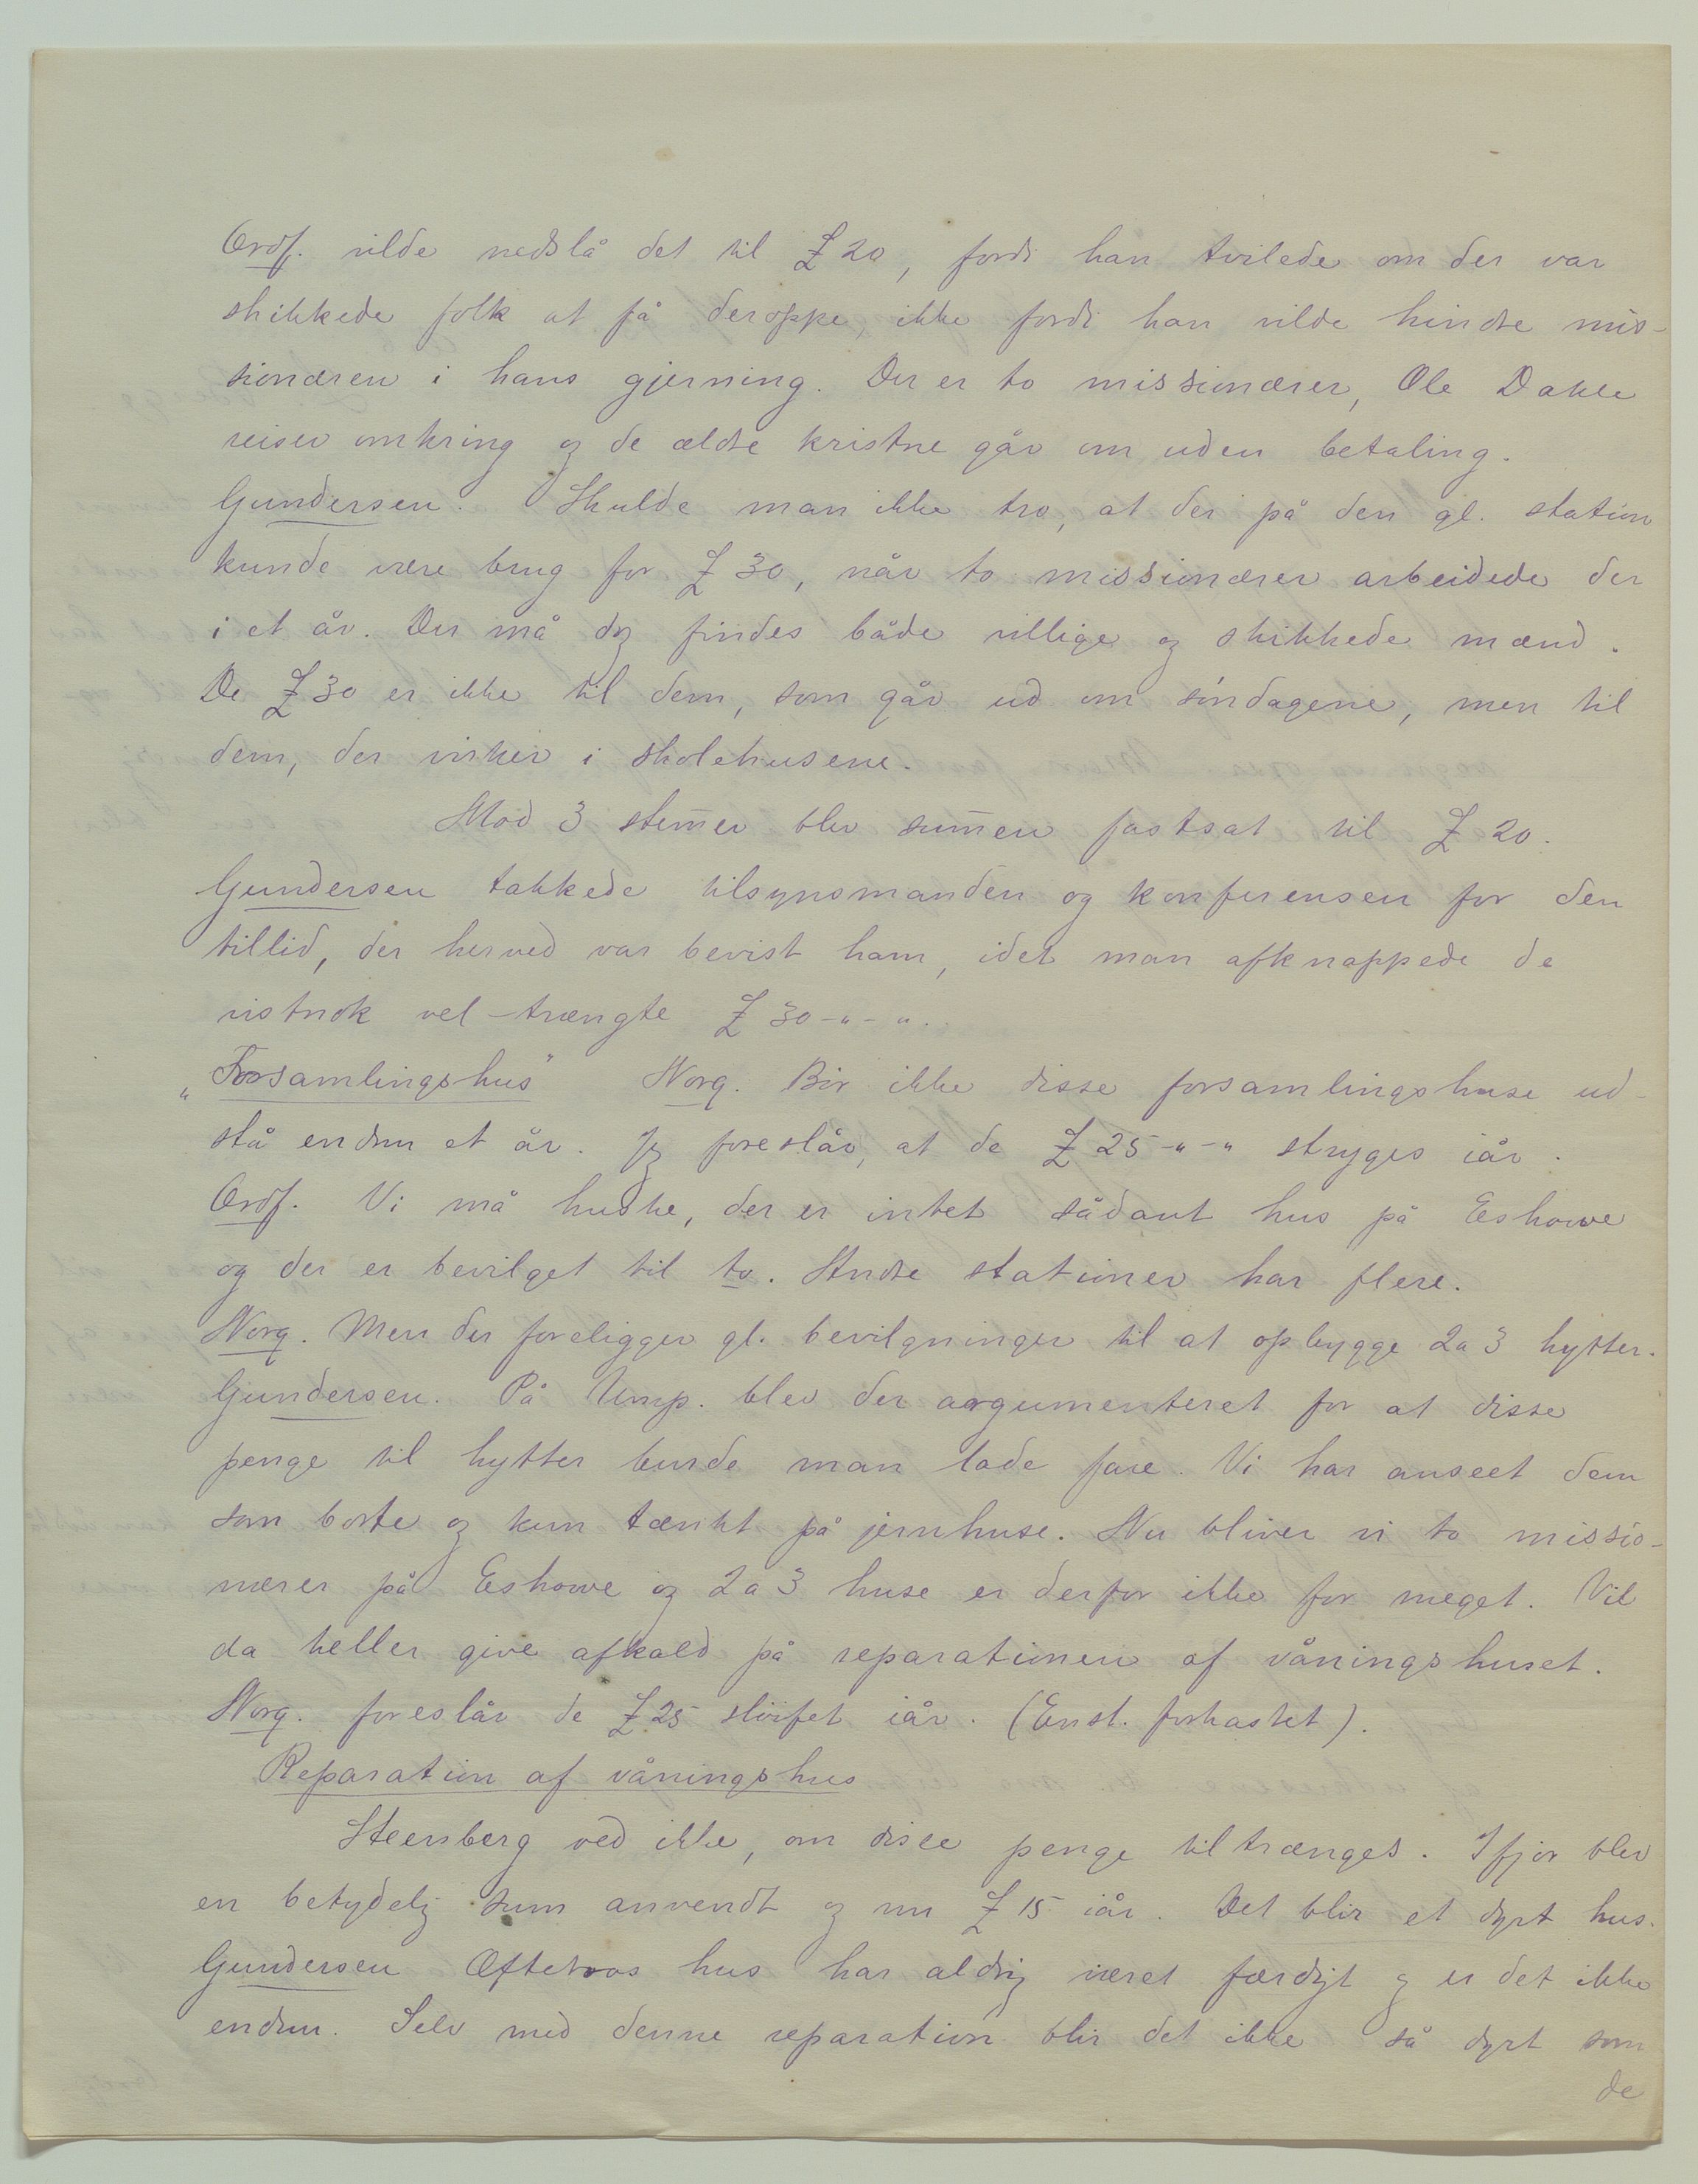 Ordf. vilde nedslå det til £ 20, fordi han tvilede om der var
skikkede folk at få deroppe, ikke fordi han vilde hindre mis-
sionæren i hans gjerning. Der er to missionærer, Ole Dakle
reiser omkring og de ældre kristne går om uden betaling.
Gundersen. Skulde man ikke tro, at der på den gl. station
kunde være brug for £ 30, når to missionærer arbeidede der
i et år. Der må dog findes både villige og skikkede mænd.
De £ 30 er ikke til dem, som går ud om söndagene, men til
dem, der virker i skolehusene.
Mod 3 stem̄er blev sum̄en fastsat til £ 20.
Gundersen takkede tilsynsmanden og konferensen for den
tillid, der herved var bevist ham, idet man afknappede de
vistnok vel-trængte £ 30-"-".
„Forsamlingshus" Norg. Bör ikke disse forsamlingshuse ud-
stå endnu et år. Jeg foreslår, at de £ 25-"-" stryges iår.
Ordf. Vi må huske, der er intet sådant hus på Eshowe
og der er bevilget til to. Andre stationer har flere.
Norg. Men der foreligger gl. bevilgninger til at opbygge 2 a 3 hytter.
Gundersen. På Ump. blev der argumenteret for at disse
penge til hytter burde man lade fare. Vi har anseet dem
som borte og kun tænkt på jernhuse. Nu bliver vi to missio-
nærer på Eshowe og 2 a 3 huse er derfor ikke for meget. Vil
da heller give afkald på reparationen af våningshuset.
Norg. foreslår de £ 25 slöifet iår. (Enst. forkastet).
Reparation af våningshus
Steenberg ved ikke, om disse penge tiltrænges. Ifjor blev
en betydelig sum anvendt og nu £ 15 iår. Det blir et dyrt hus.
Gundersen Æftevaas hus har aldrig været færdigt og er det ikke
endnu. Selv med denne reparation blir det ikke så dyrt som
de